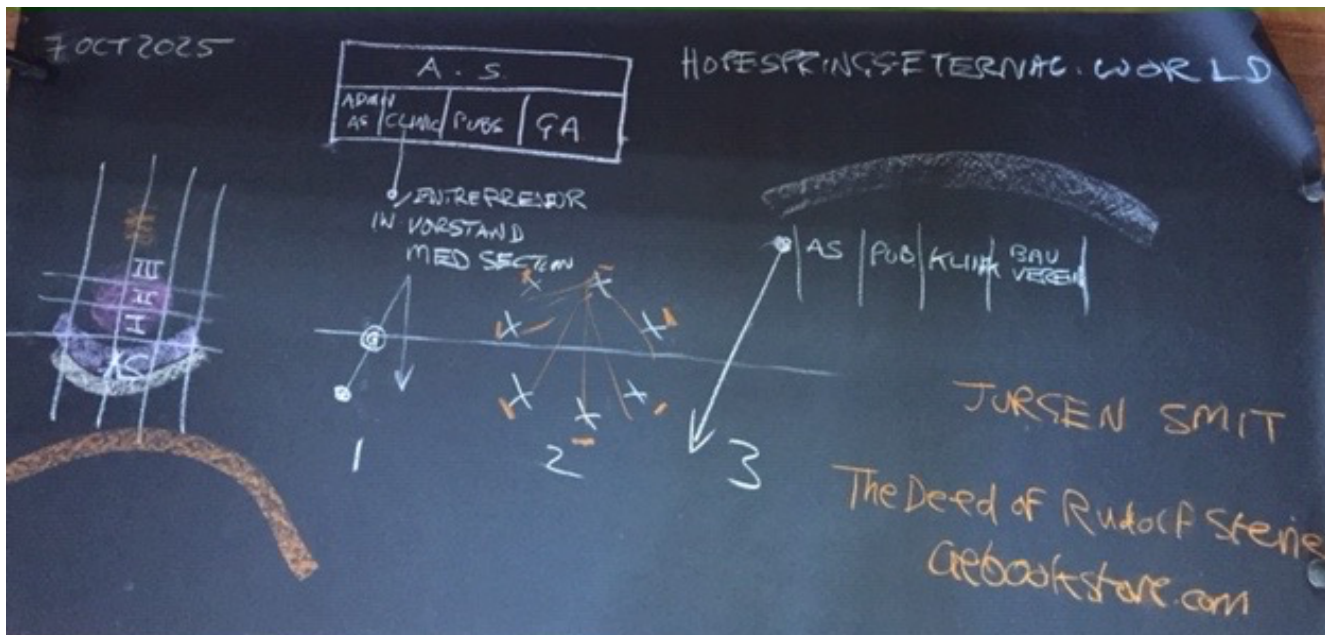 7 OCT 2025
A. S.
ADMIN
AS
CLINIC
PUBS
GA
HOPESPRINGS-ETERNAL.WORLD
ENTREPRENEUR
IN VORSTAND
MED SECTION
AS
PUB
KLINIK
BAU
VEREIN
III
II
I
1
2
3
JORGEN SMIT
The Deed of Rudolf Steine
aebookstore.com